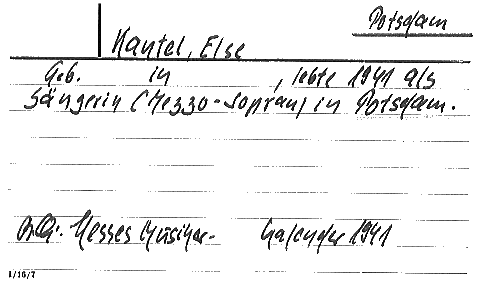 Potsdam
Kantel, Else
Geb. in , lebte 1941 als
Sängerin (Mezzo-Sopran) in Potsdam.
Hesses Musiker- Kalender 1941
1/10/7